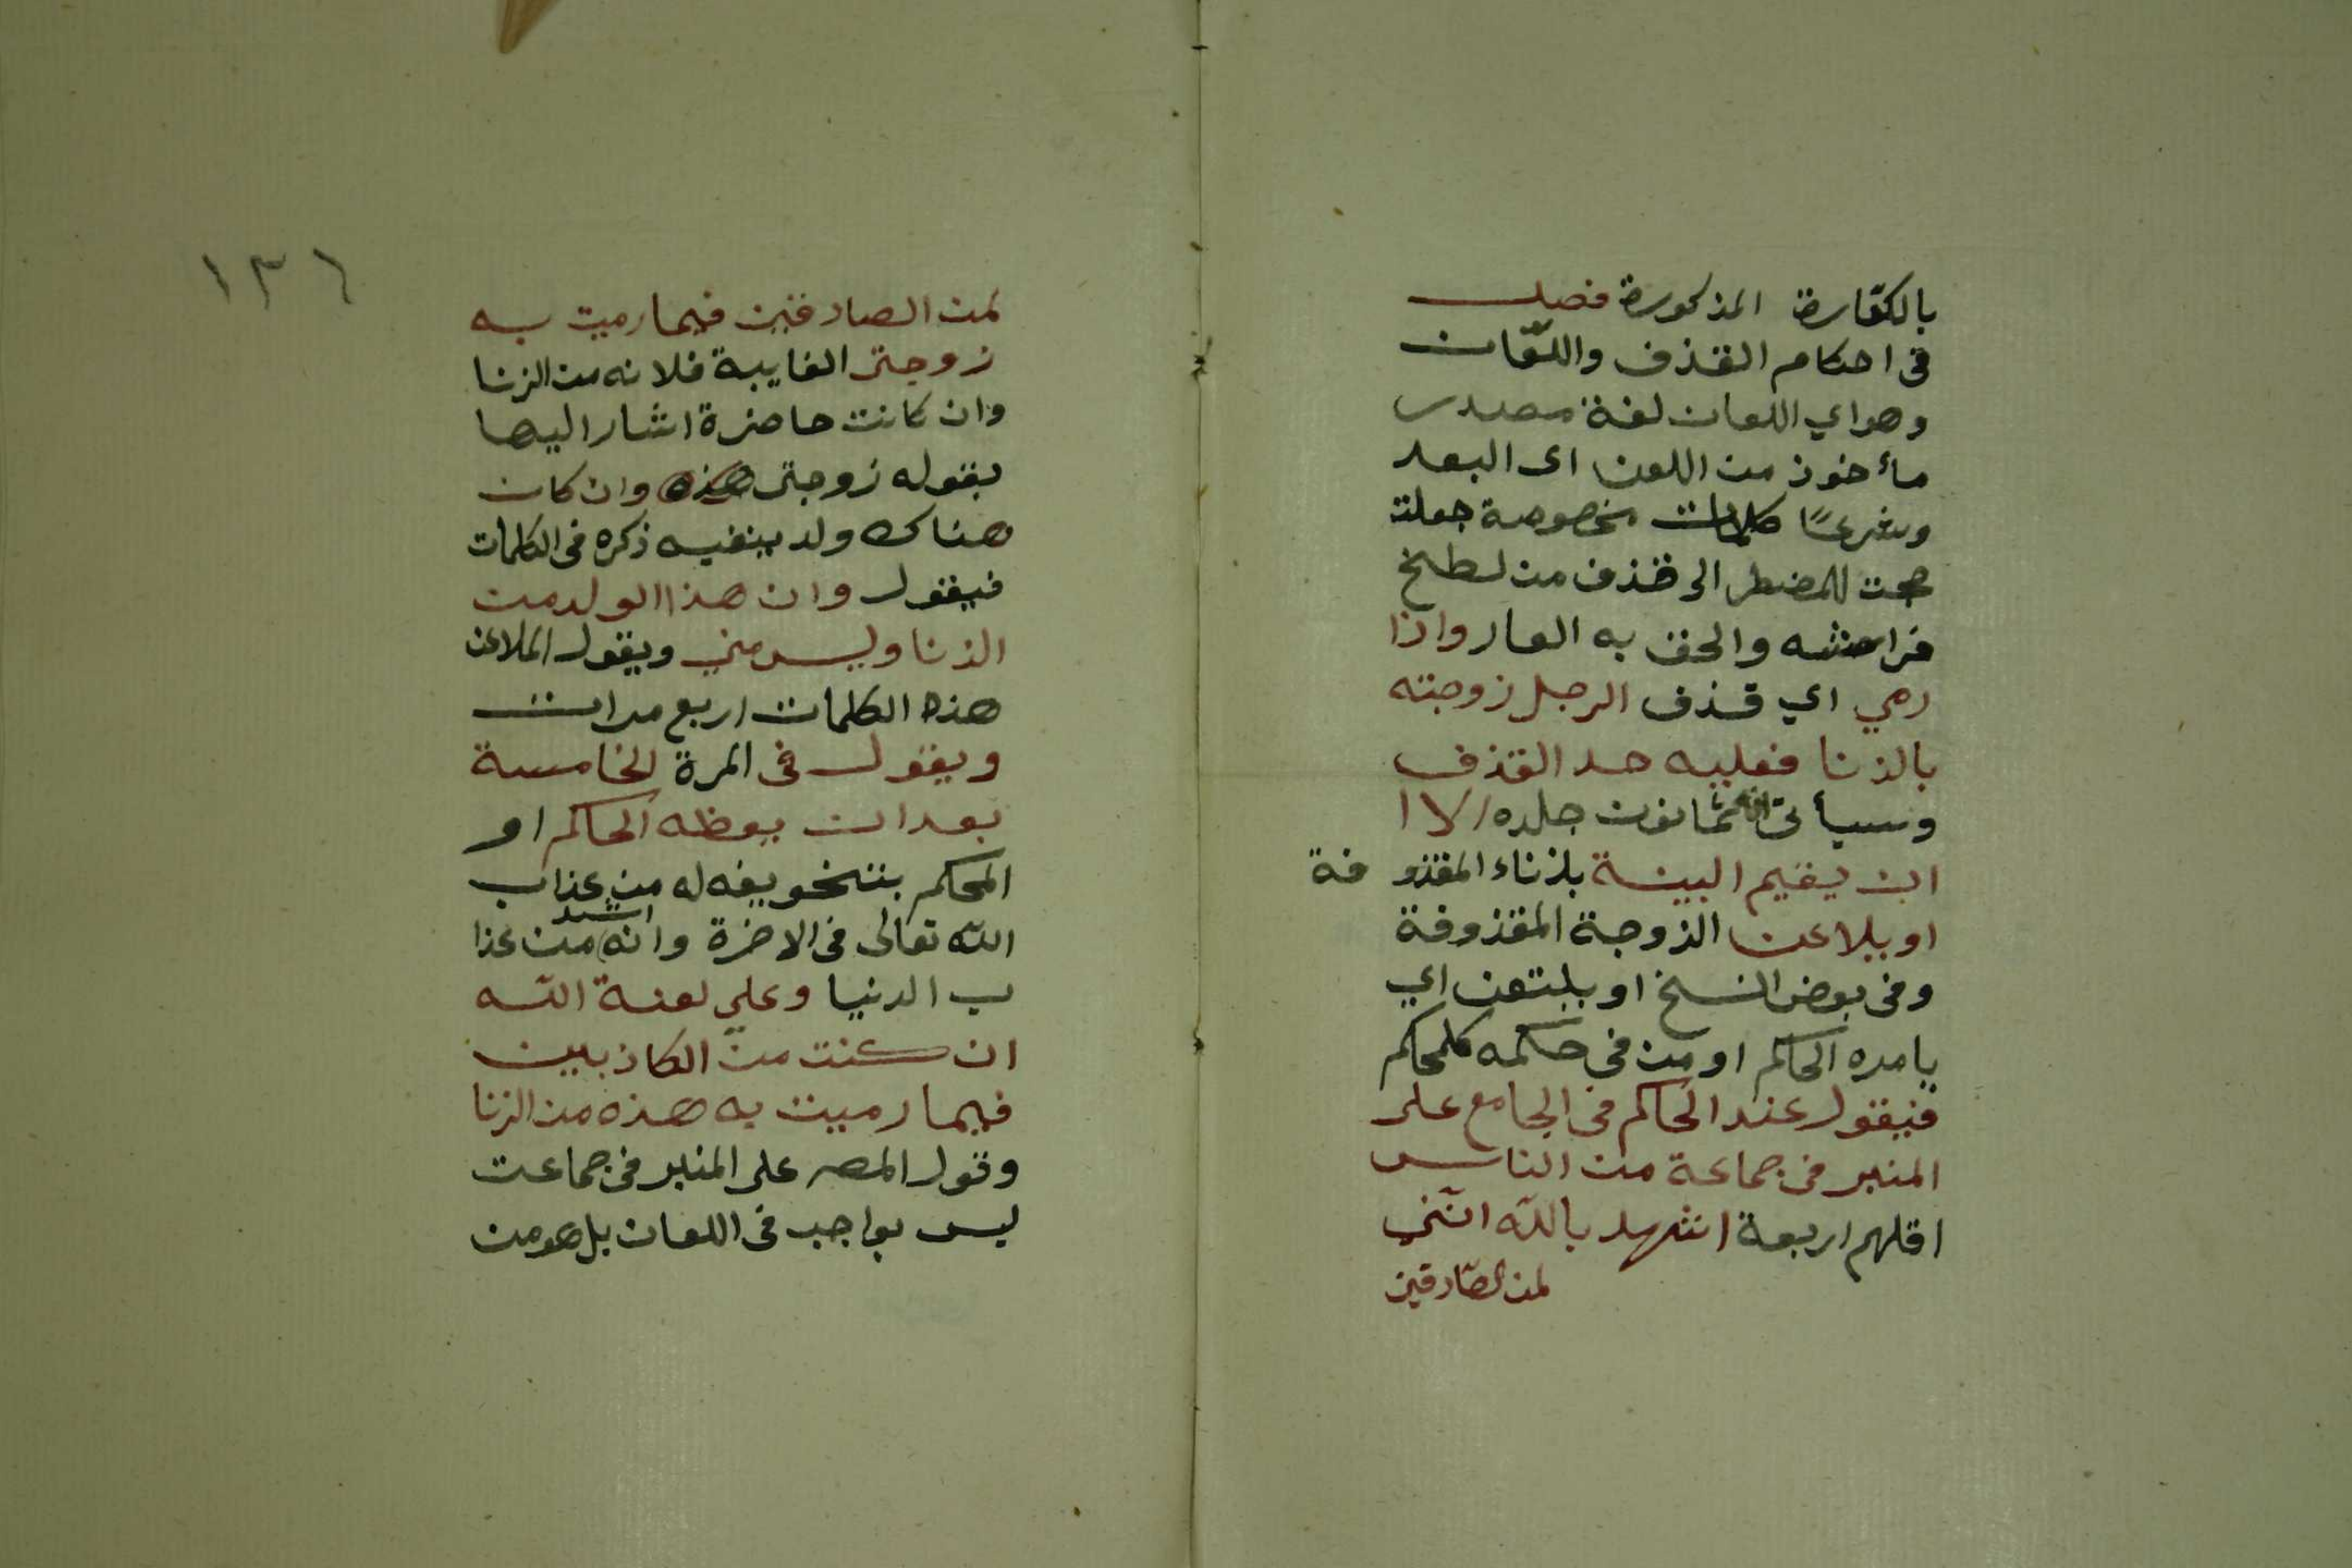 بالكفّارة المذكورة فصل
فى احكام القذف واللّعان
وهو اي اللعان لغة مصدر
مأخوذ من اللعن اى البعد
وشرعًا كلمات مخصوصة جعلت
حجت للمضطر الى قذف من لطخ
فراشه والحق به العار واذا
رمي اي قذف الرجل زوجته
بالزنا فعليه حد القذف
وسيأتى انه ثمانون جلده الا ا
ان يقيم البينة بزناء المقذو فة
او يلاعن الزوجة المقذوفة
وفى بعض النسخ او يلتعن اي
يامره الحاكم او من فى حكمه كلمحكم
فيقول عند الحاكم فى الجامع على
المنبر فى جماعة من الناس
اقلهم اربعة اشهد بالله انّني
لمن الصّادقين
١٣٦
لمن الصادقين فيما رميت به
زوجتى الغايبة فلانه من الزنا
وان كانت حاضرة اشار اليها
بقوله زوجتى هذه وان كان
هناك ولد ينفيه ذكره فى الكلمات
فيقول وان هذا الولد من
الزنا وليس مني ويقول الملاعن
هذه الكلمات اربع مرات
ويقول فى المرة الخامسة
بعد ان يعظه الحاكم او
المحكم بتخويفه له من عذاب
الله تعالى فى الاخرة وانه اشد من عذا
ب الدنيا وعلي لعنة الله
ان كنت من الكاذبين
فيما رميت به هذه من الزنا
وقول المصـ على المنبر فى جماعت
ليس بواجب فى اللعان بل هو من